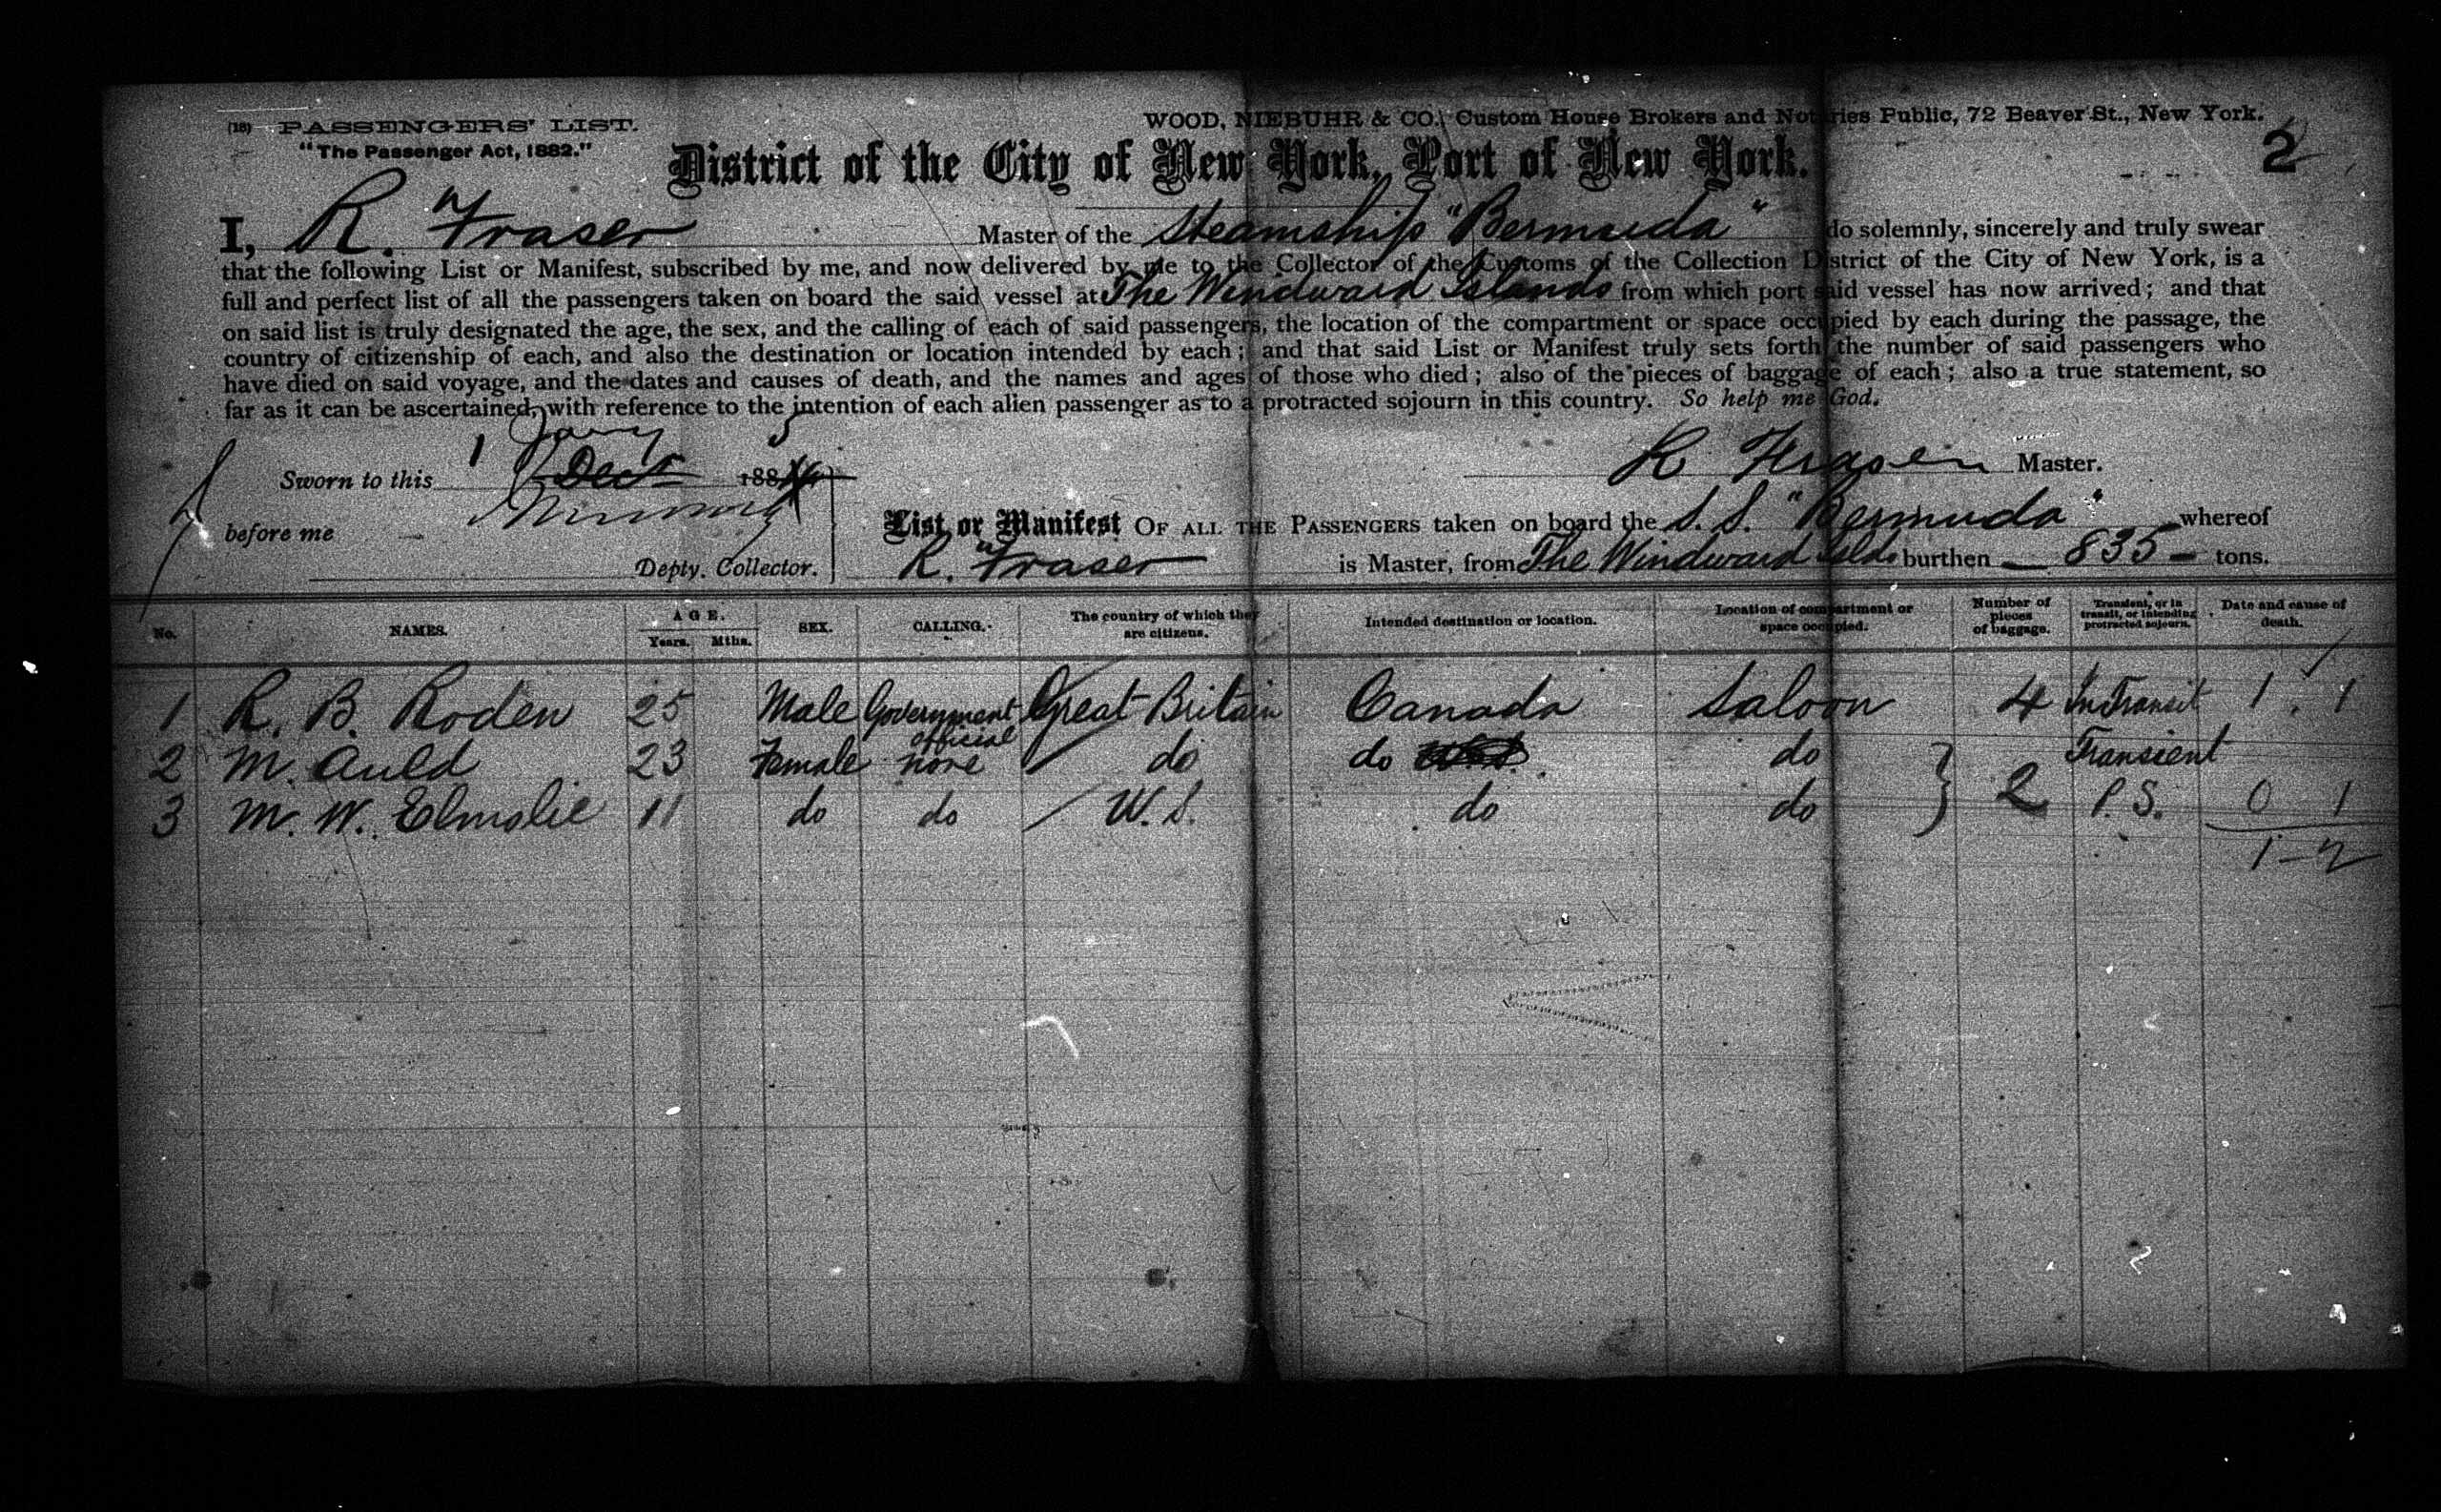 (18) PASSENGERS' LIST.
WOOD, NIEBUHR & CO., Custom House Brokers and Notaries Public, 72 Beaver St., New York.
"The Passenger Act, 1882."
District of the City of New York, Port of New York.
2
I, R. Fraser Master of the Steamship "Bermuda" do solemnly, sincerely and truly swear
that the following List or Manifest, subscribed by me, and now delivered by me to the Collector of the Customs of the Collection District of the City of New York, is a
full and perfect list of all the passengers taken on board the said vessel at The Windward Islands from which port said vessel has now arrived; and that
on said list is truly designated the age, the sex, and the calling of each of said passengers, the location of the compartment or space occupied by each during the passage, the
country of citizenship of each, and also the destination or location intended by each; and that said List or Manifest truly sets forth the number of said passengers who
have died on said voyage, and the dates and causes of death, and the names and ages of those who died; also of the pieces of baggage of each; also a true statement, so
far as it can be ascertained, with reference to the intention of each alien passenger as to a protracted sojourn in this country. So help me God.
Jany 5
Sworn to this 1 Dec 188
R Fraser Master.
before me
List or Manifest OF ALL THE PASSENGERS taken on board the S. S. "Bermuda" whereof
Depty. Collector. R. Fraser is Master, from The Windward Islds burthen 835 tons.
No. NAMES. AGE. Years. Mths. SEX. CALLING. The country of which they are citizens. Intended destination or location. Location of compartment or space occupied. Number of pieces of baggage. Transient, or in transit, or intending protracted sojourn. Date and cause of death.
1 R. B. Roden 25 Male Government official Great Britain Canada Saloon 4 In Transit 1 . 1
2 M. Auld 23 Female none do do do Transient
3 M. W. Elmslie 11 do do U.S. do do 2 P.S. 0 1
1-2